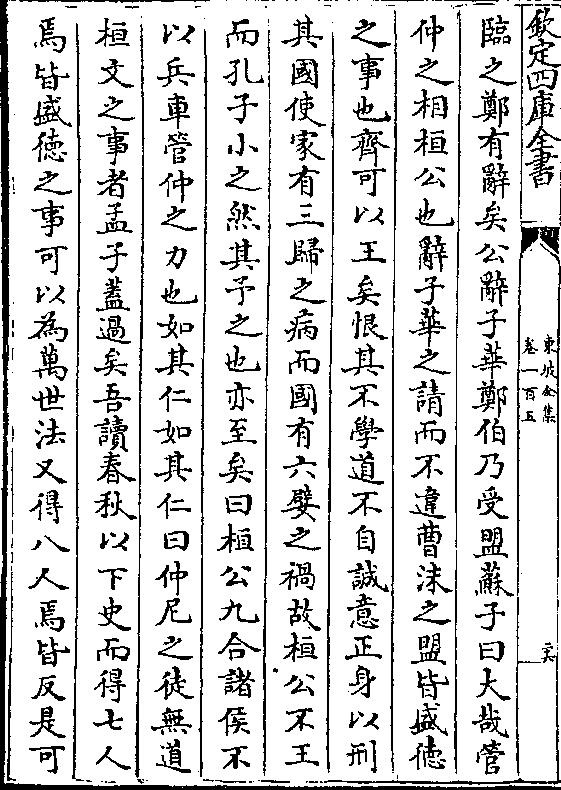 欽定四庫全書
東坡全集
卷一百五
臨之鄭有辭矣公辭子華鄭伯乃受盟蘇子曰大哉管
仲之相桓公也辭子華之請而不違曹沫之盟皆盛德
之事也齊可以王矣恨其不學道不自誠意正身以刑
其國使家有三歸之病而國有六嬖之禍故桓公不王
而孔子小之然其予之也亦至矣曰桓公九合諸侯不
以兵車管仲之力也如其仁如其仁曰仲尼之徒無道
桓文之事者孟子蓋過矣吾讀春秋以下史而得七人
焉皆盛徳之事可以為萬世法又得八人焉皆反是可